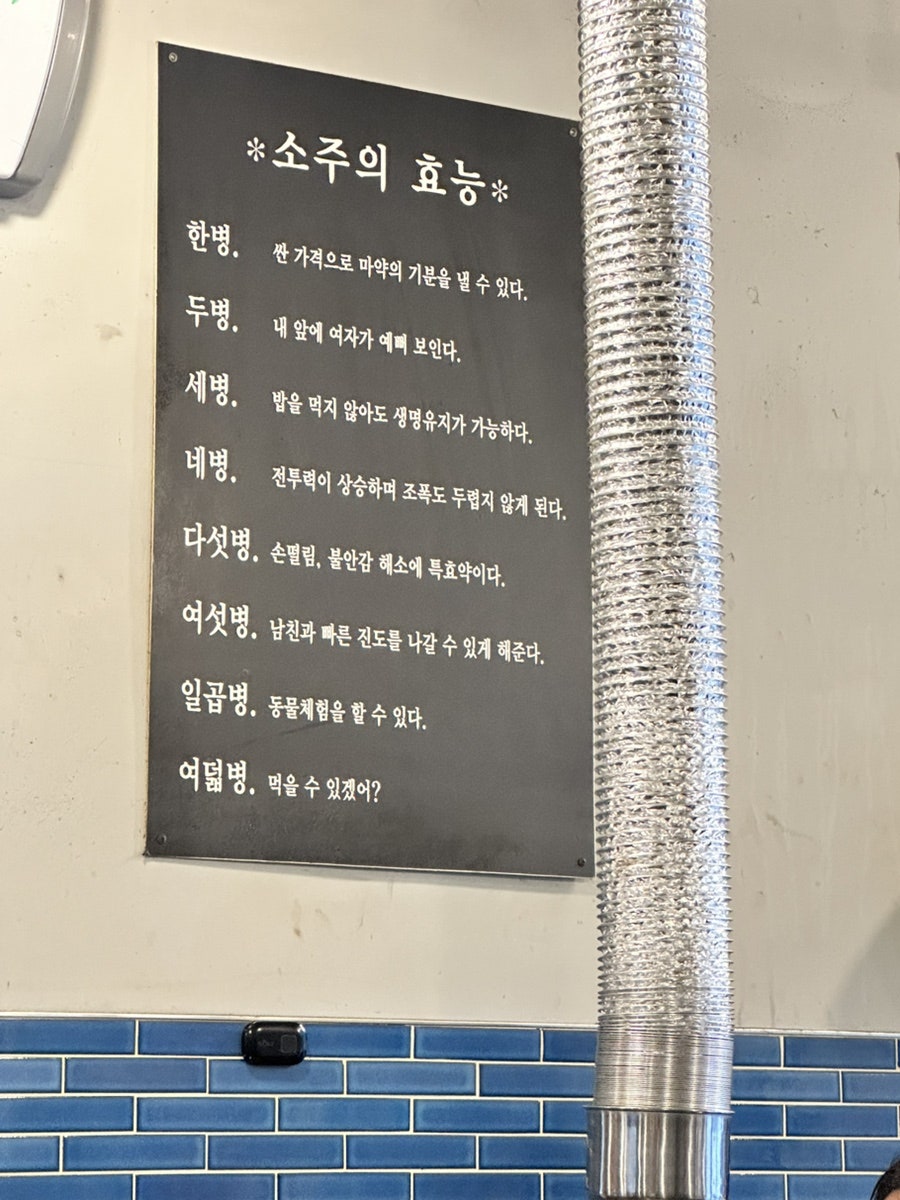 *소주의 효능*
한병. 싼 가격으로 마약의 기분을 낼 수 있다.
두병. 내 앞에 여자가 예뻐 보인다.
세병. 밥을 먹지 않아도 생명유지가 가능하다.
네병. 전투력이 상승하며 조폭도 두렵지 않게 된다.
다섯병. 손떨림, 불안감 해소에 특효약이다.
여섯병. 남친과 빠른 진도를 나갈 수 있게 해준다.
일곱병. 동물체험을 할 수 있다.
여덟병. 먹을 수 있겠어?